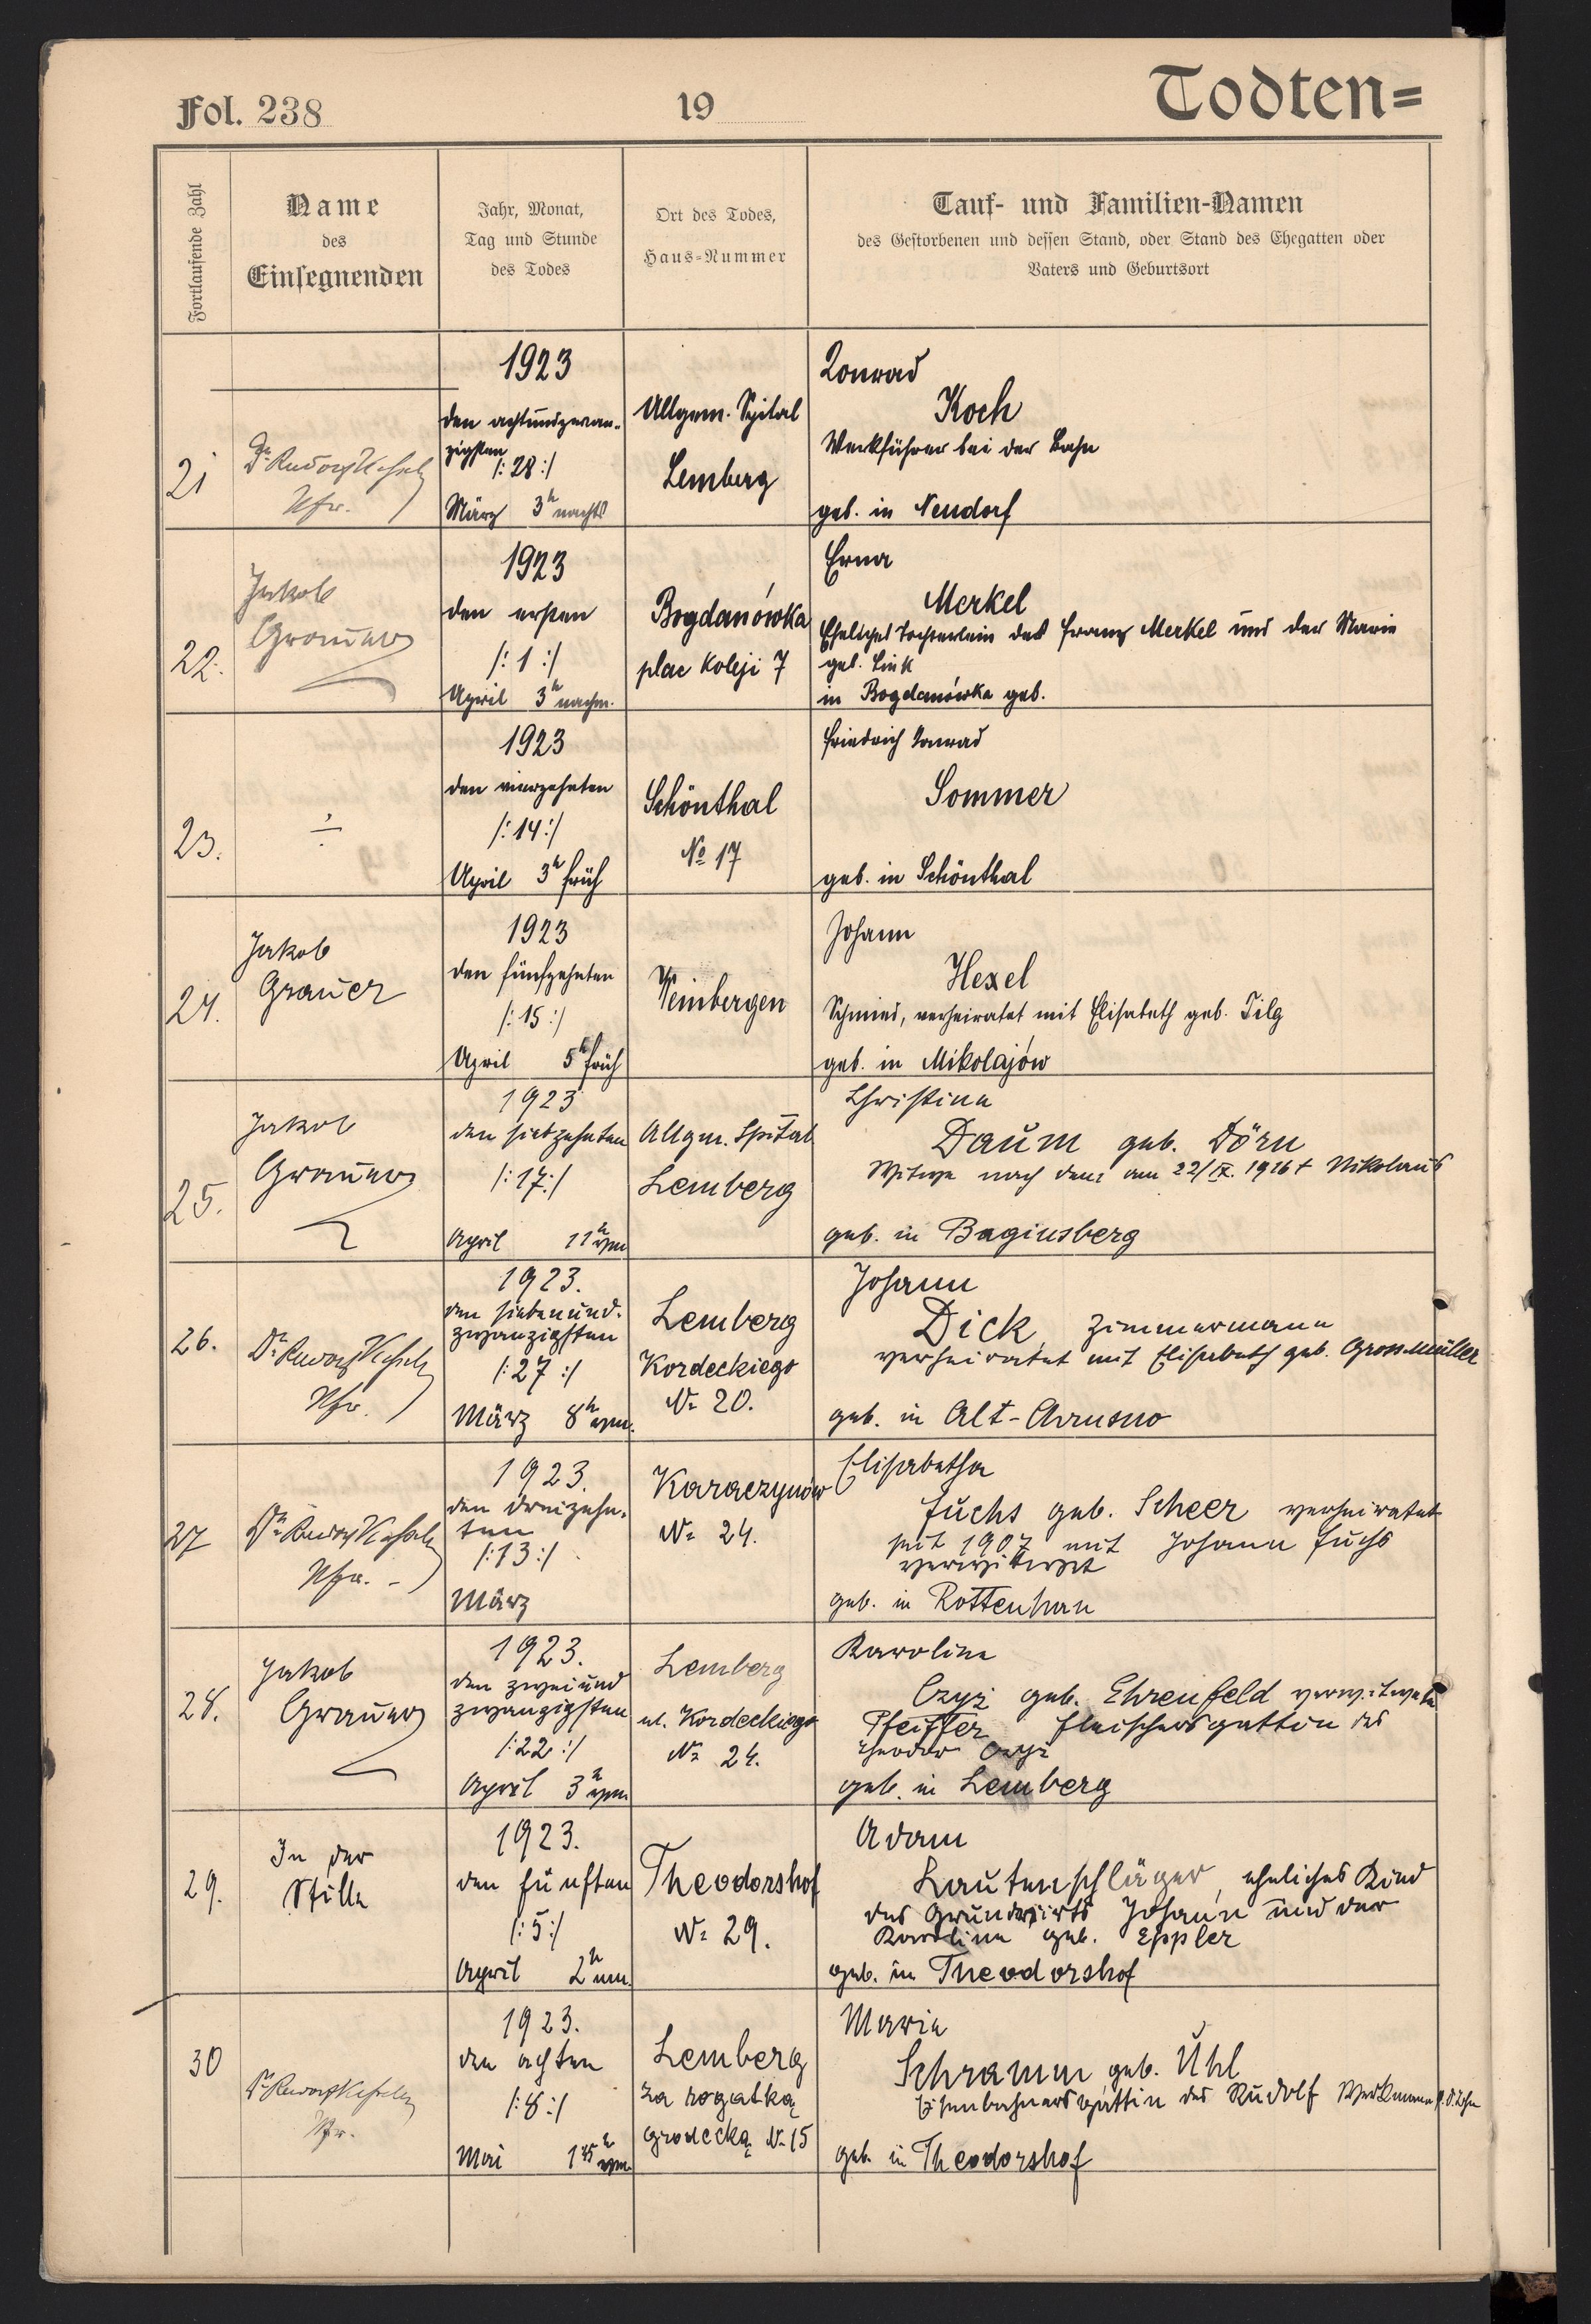 Fol. 238
19
Todten=
Fortlaufende Zahl
Name
des
Einsegnenden
Jahr, Monat,
Tag und Stunde
des Todes
Ort des Todes,
Haus-Nummer
Tauf- und Familien-Namen
des Gestorbenen und dessen Stand, oder Stand des Ehegatten oder
Vaters und Geburtsort
21
Dr Rudolf Kesselring
Pfr.
1923
den achtundzwan-
zigsten
/: 28 :/
März 3h nachts
Allgem. Spital
Lemberg
Konrad
Koch
Werkführer bei der Bahn
geb. in Neudorf
22.
Jakob
Grauer
1923
den ersten
/: 1 :/
April 3h nachm.
Bogdanówka
plac Koleji 7
Erna
Merkel
Eheliches Töchterlein des Franz Merkel und der Marie
geb. Link
in Bogdanówka geb.
23.
÷
1923
den vierzehnten
/: 14 :/
April 3h früh
Schönthal
No 17
Friedrich Konrad
Sommer
geb. in Schönthal
24.
Jakob
Grauer
1923
den fünfzehnten
/: 15 :/
April 5h früh
Weinbergen
Johann
Hexel
Schmied, verheiratet mit Elisabeth geb. Tilg
geb. in Mikolajów
25.
Jakob
Grauer
1923
den siebzehnten
/: 17 :/
April 11h vm
Allgm. Spital
Lemberg
Christina
Daum geb. Dörn
Witwe nach dem am 22/IX. 1916 † Nikolaus
geb. in Baginsberg
26.
Dr Rudolf Kesselring
Pfr.
1923.
den siebenund-
zwanzigsten
/: 27 :/
März 8h vm.
Lemberg
Kordeckiego
No 20.
Johann
Dick, Zimmermann
verheiratet mit Elisabeth geb. Grossmüller
geb. in Alt-Chrusno
27
Dr Rudolf Kesselring
Pfr.
1923.
den dreizehn-
ten
/: 13 :/
März
Karaczynów
No 24.
Elisabetha
Fuchs geb. Scheer verheiratet
seit 1907 mit Johann Fuchs
verwitwet
geb. in Rottenhan
28.
Jakob
Grauer
1923.
den zweiund
zwanzigsten
/: 22 :/
April 3h vm
Lemberg
ul. Kordeckiego
No 24.
Karoline
Czyż geb. Ehrenfeld verwitwete
Pfeiffer Fleischersgattin des
Theodor Czyż
geb. in Lemberg
29.
In der
Stille
1923.
den fünften
/: 5 :/
April 2h nm.
Theodorshof
No 29.
Adam
Lautenschläger, eheliches Kind
des Grundwirts Johann und der
Karoline geb. Eppler
geb. in Theodorshof
30
Dr Rudolf Kesselring
Pfr.
1923.
den achten
/: 8 :/
Mai 1 45h vm.
Lemberg
za rogatką
grodecką No 15
Marie
Schramm geb. Uhl
Eisenbahnersgattin des Rudolf Werkmann
geb. in Theodorshof